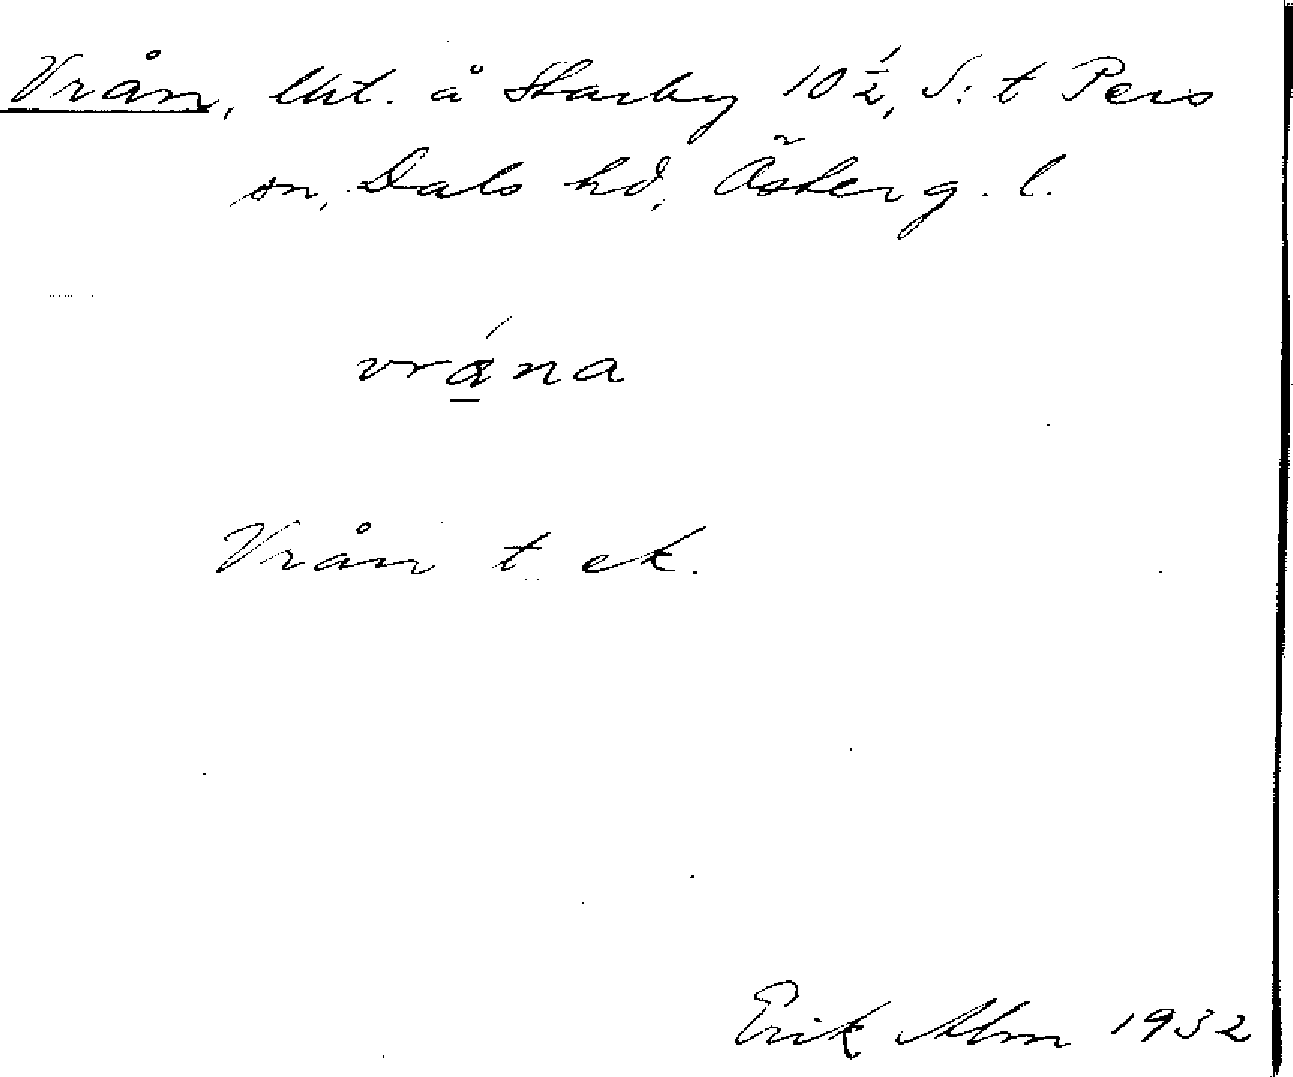 Vrån, lht. å Starby 10 1/2, S:t Pers
sn, Dals hd, Österg. l.
vrǻna
Vrån t ek.
Erik Alm 1932